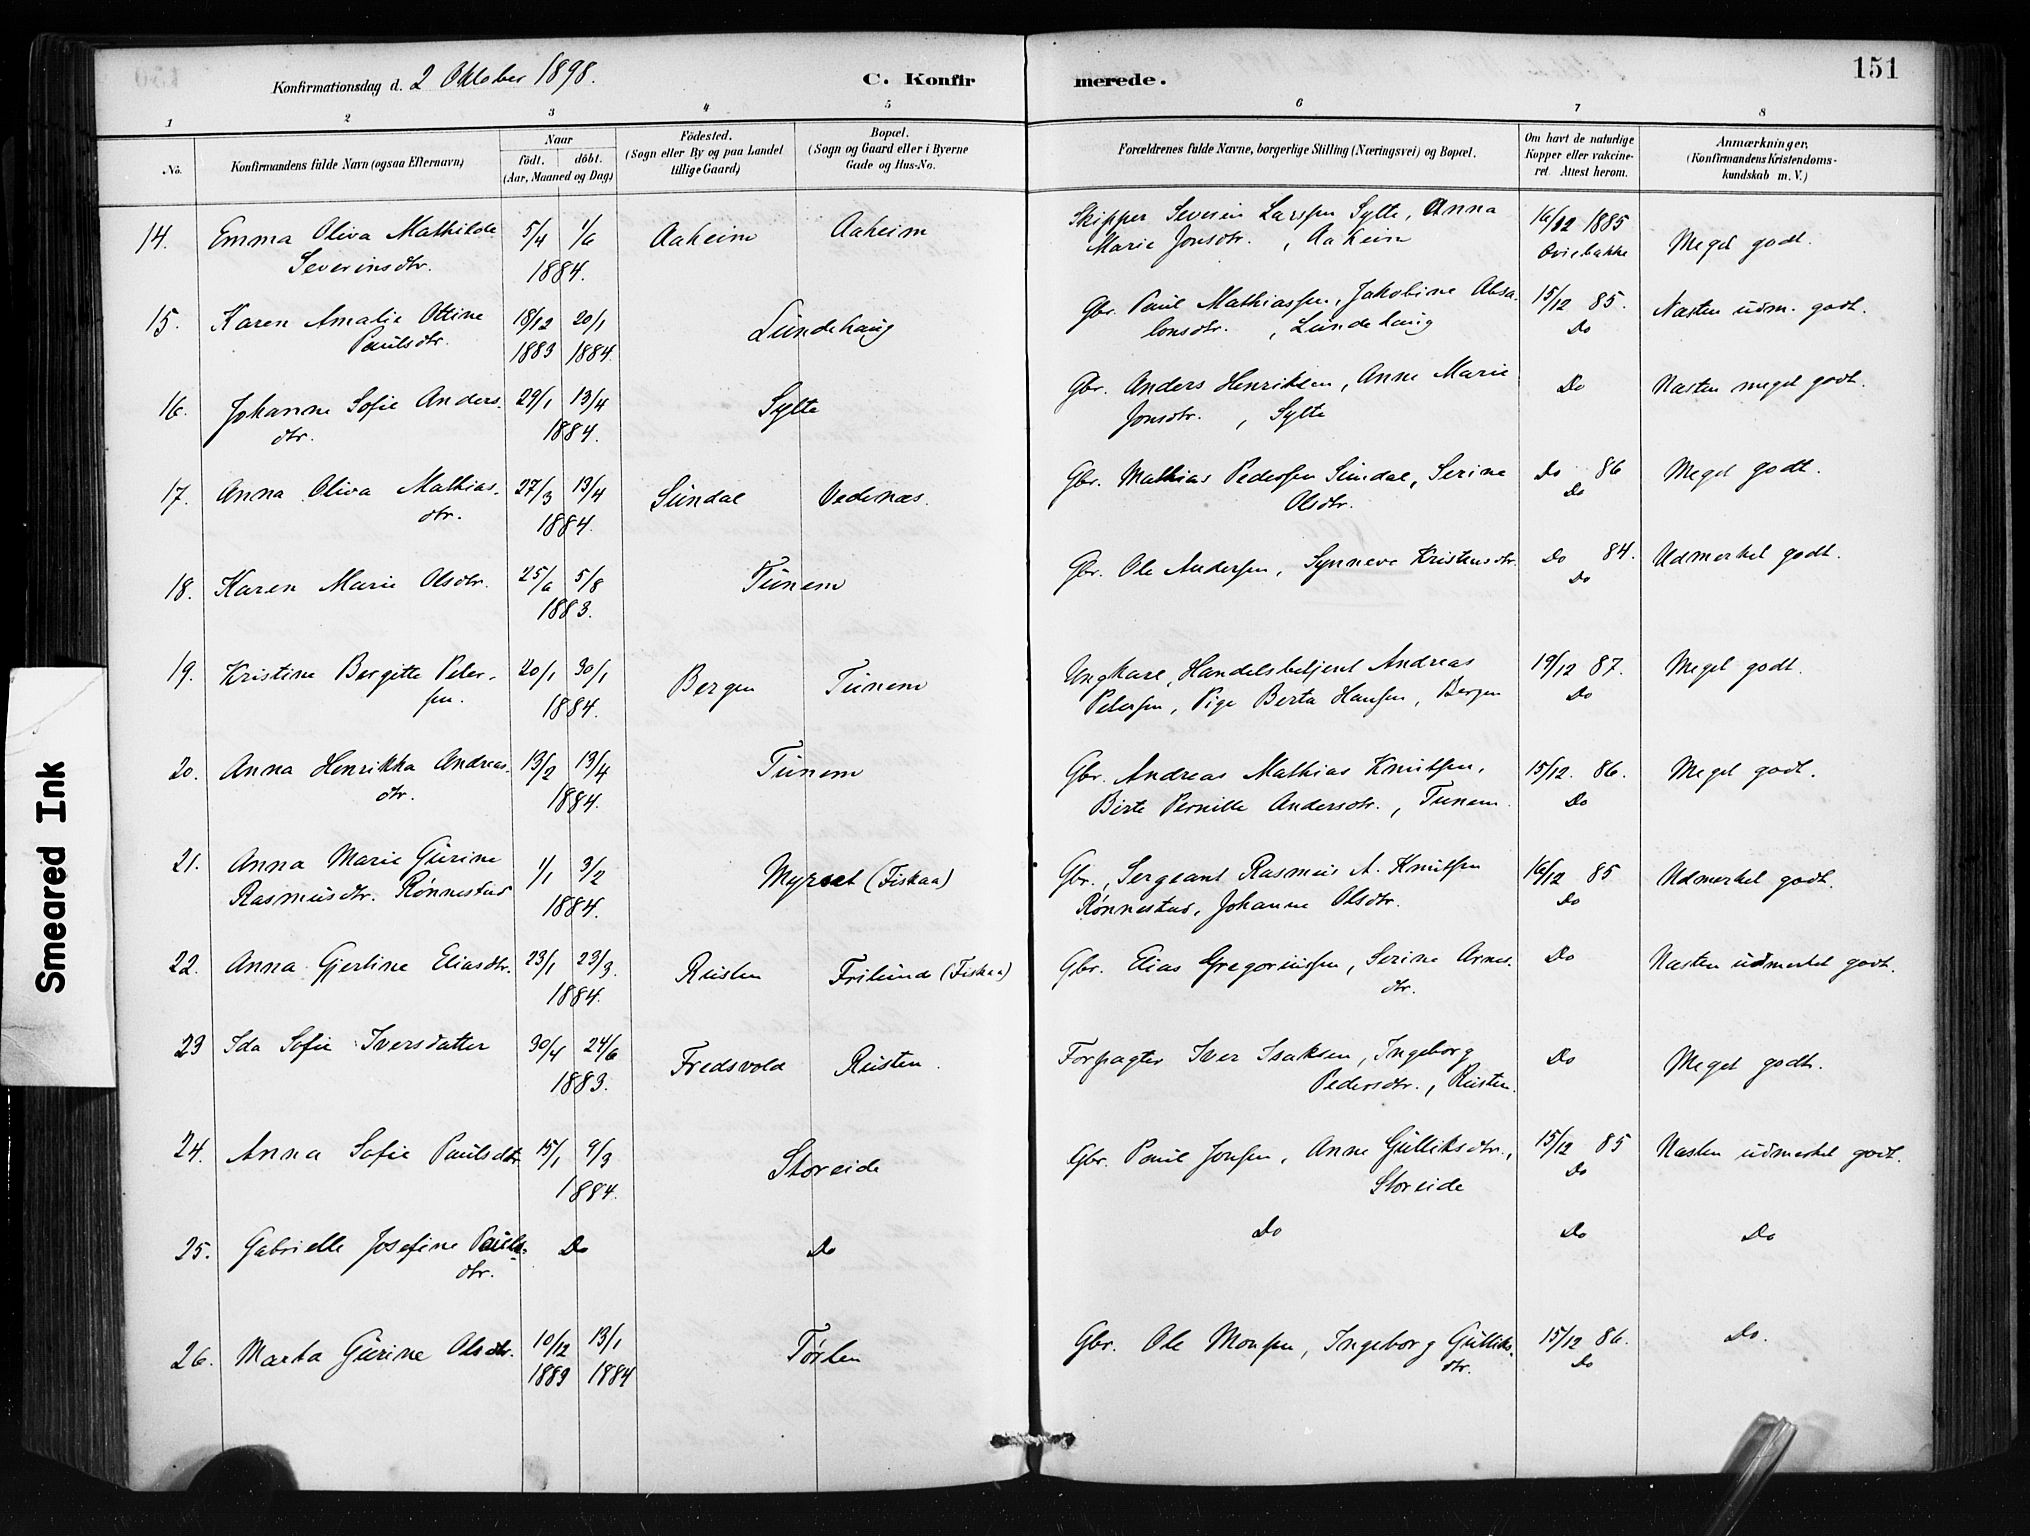 Konfirmationsdag d. 2 Oktober 1898.
C. Konfirmerede.
151
1 2 3 4 5 6 7 8
No.
Konfirmandens fulde Navn (ogsaa Efternavn)
Naar
födt. döbt.
(Aar, Maaned og Dag)
Födested.
(Sogn eller By og paa Landet
tillige Gaard)
Bopæl.
(Sogn og Gaard eller i Byerne
Gade og Hus-No.
Forældrenes fulde Navne, borgerlige Stilling (Næringsvei) og Bopæl.
Om havt de naturlige
Kopper eller vakcine-
ret. Attest herom.
Anmærkninger,
(Konfirmandens Kristendoms-
kundskab m. V.)
14. Emma Oliva Mathilde 5/4 1/6 Aaheim Aaheim Skipper Severin Larssen Sylte, Anna 16/12 1885 Meget godt.
Severinsdtr. 1884. Marie Jonsdtr. , Aaheim Oviebakke
15. Karen Amalie Ottine 18/12 20/1 Lundehaug Gbr. Paul Mathiassen, Jakobine Absa- 15/12 85. Næsten udm. godt.
Paulsdtr. 1883 1884. lonsdtr. , Lundehaug Do
16. Johanne Sofie Anders- 29/1 13/4 Sylte Gbr. Anders Henriksen, Anne Marie Do Næsten meget godt.
dtr. 1884. Jonsdtr. , Sylte
17. Anna Oliva Mathias- 27/3 13/4 Sundal Vedenæs. Gbr. Mathias Pedersen Sundal, Serine Do 86 Meget godt.
dtr. 1884. Olsdtr. Do
18. Karen Marie Olsdtr. 25/6 5/8 Tunem Gbr. Ole Andersen, Synneve Kristensdtr. Do 84. Udmerket godt.
1883. Do
19. Kristine Bergitte Peter- 20/1 30/1 Bergen Tunem Ungkarl, Handelsbetjent Andreas 19/12 87. Meget godt.
sen. 1884. Petersen, Pige Berta Hansen, Bergen Do
20. Anna Henrikka Andreas- 13/2 13/4 Tunem Gbr. Andreas Mathias Knutsen, 15/12. 86. Meget godt.
dtr. 1884. Birte Pernille Andersdtr., Tunem. Do
21. Anna Marie Gurine 1/1 3/2 Myrset (Fiskaa) Gbr., Sergeant Rasmus A. Knutsen 16/12 85 Udmerket godt.
Rasmusdtr. Rønnestad 1884. Rønnestad, Johanne Olsdtr. Do
22. Anna Gjertine Eliasdtr. 23/1 23/3. Rusten Frilund (Fiskaa) Gbr. Elias Gregoriussen, Serine Arnes- Do Næsten udmerket godt.
1884. dtr.
23 Ida Sofie Iversdatter 30/4 24/6 Fredsvold Rusten. Forpagter Iver Isaksen, Ingeborg Do Meget godt.
1883. Pedersdtr., Rusten.
24. Anna Sofie Paulsdtr. 15/1 9/3 Storeide Gbr. Paul Jonsen, Anne Gulliksdtr., 15/12 85 Næsten udmerket godt.
1884. Storeide Do
25. Gabrielle Josefine Pauls- Do Do Do Do Do
dtr.
26. Marta Gurine Olsdtr. 10/12 13/1 Tørlen Gbr. Ole Monsen, Ingeborg Gulliks- 15/12 86. Do.
1883 1884 dtr. Do
Smeared Ink